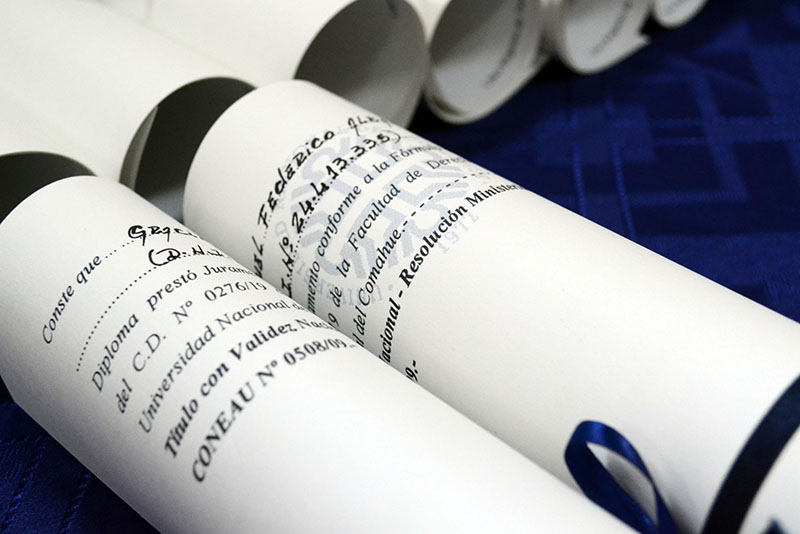 Conste que
Diploma prestó Juram
del C.D. Nº 0276/19
Universidad Nacional d
Título con Validez Naci
CONEAU Nº 0508/09
FEDERICO ALE
Nº 24.413.335)
mento conforme a la Fórmul
9 de la Facultad de Derec
l del Comahue
acional - Resolución Ministeri
9.-
1972